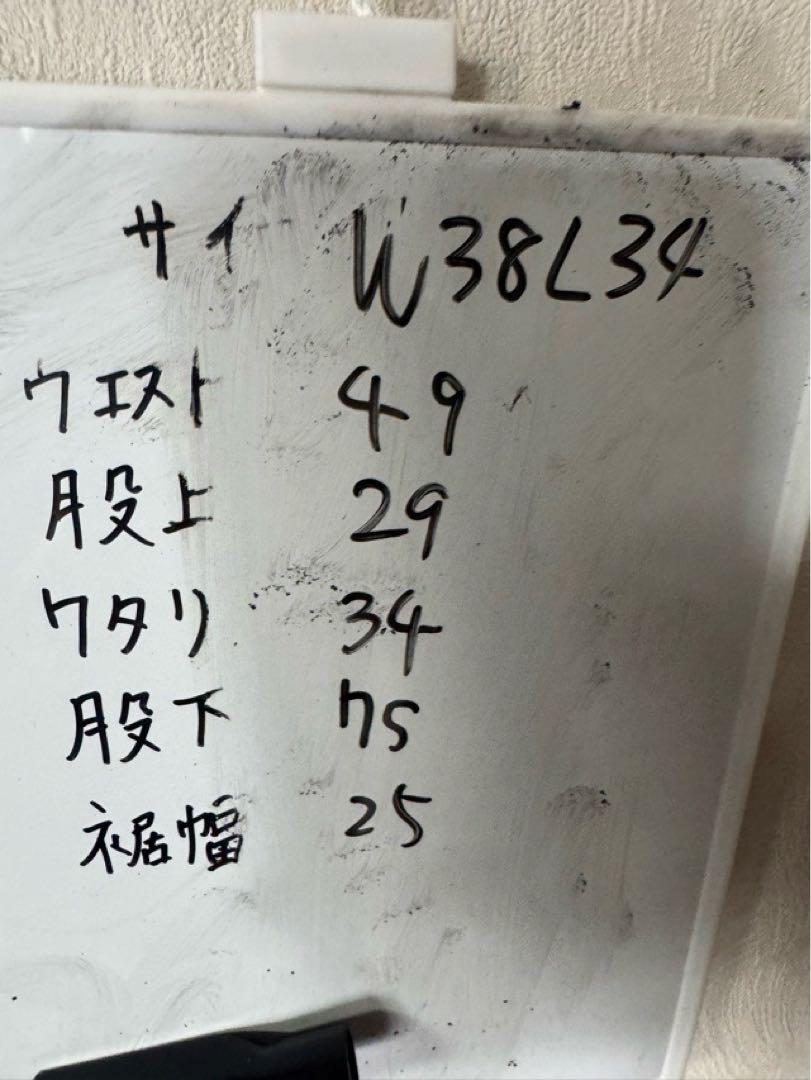 サイ W38L34
ウエスト 49
股上 29
ワタリ 34
股下 75
裾幅 25